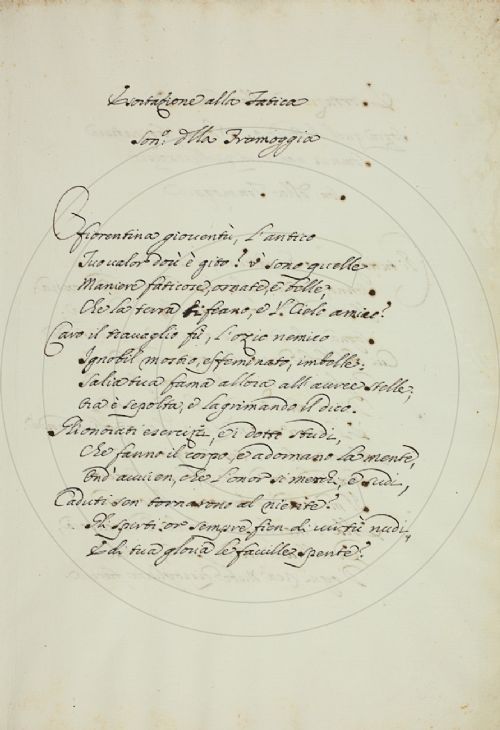 Esortazione alla Fatica
Son.o d'lla Tramoggia
O fiorentina gioventù, l'antico
Tuo valor dov' è gito? v' sono quelle
Maniere faticose, ornate, e belle,
Che la terra ti feano, e 'l Cielo amico?
Caro il travaglio fù, l'ozio nemico
Ignobil mostro, effeminato, imbelle:
Salia tua fama allora all' auree stelle,
Ora è sepolta, e lagrimando il dico.
Gli onorati esercizj, e i dotti studi,
Che fanno il corpo, e adornano la mente,
Ond' avvien, che l'onor si merchi, e sudi,
Caduti son tornarono al niente?
Gli spirti or sempre fien di virtù nudi,
E di tua gloria le faville spente?